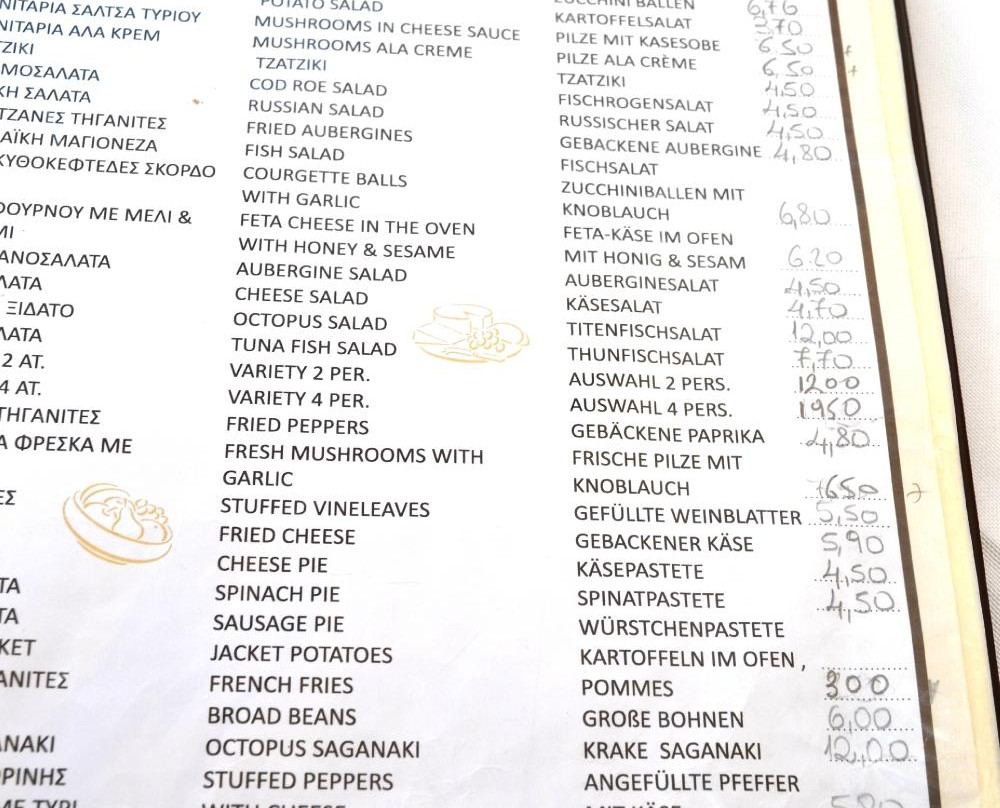 ΝΙΤΑΡΙΑ ΣΑΛΤΣΑ ΤΥΡΙΟΥ
ΝΙΤΑΡΙΑ ΑΛΑ ΚΡΕΜ
ΤΖΙΚΙ
ΜΟΣΑΛΑΤΑ
ΚΗ ΣΑΛΑΤΑ
ΤΖΑΝΕΣ ΤΗΓΑΝΙΤΕΣ
ΑΪΚΗ ΜΑΓΙΟΝΕΖΑ
ΚΥΘΟΚΕΦΤΕΔΕΣ ΣΚΟΡΔΟ
ΦΟΥΡΝΟΥ ΜΕ ΜΕΛΙ &
ΜΙ
ΑΝΟΣΑΛΑΤΑ
ΛΑΤΑ
ΞΙΔΑΤΟ
ΛΑΤΑ
2 ΑΤ.
4 ΑΤ.
ΤΗΓΑΝΙΤΕΣ
Α ΦΡΕΣΚΑ ΜΕ
ΕΣ
ΤΑ
ΤΑ
ΚΕΤ
ΑΝΙΤΕΣ
ΑΝΑΚΙ
ΟΡΙΝΗΣ
ΜΕ ΤΥΡΙ
POTATO SALAD
MUSHROOMS IN CHEESE SAUCE
MUSHROOMS ALA CREME
TZATZIKI
COD ROE SALAD
RUSSIAN SALAD
FRIED AUBERGINES
FISH SALAD
COURGETTE BALLS
WITH GARLIC
FETA CHEESE IN THE OVEN
WITH HONEY & SESAME
AUBERGINE SALAD
CHEESE SALAD
OCTOPUS SALAD
TUNA FISH SALAD
VARIETY 2 PER.
VARIETY 4 PER.
FRIED PEPPERS
FRESH MUSHROOMS WITH
GARLIC
STUFFED VINELEAVES
FRIED CHEESE
CHEESE PIE
SPINACH PIE
SAUSAGE PIE
JACKET POTATOES
FRENCH FRIES
BROAD BEANS
OCTOPUS SAGANAKI
STUFFED PEPPERS
WITH CHEESE
ZUCCHINI BALLEN
KARTOFFELSALAT 3,70
PILZE MIT KASESOBE 6.50
PILZE ALA CRÈME 6,50
TZATZIKI 4,50
FISCHROGENSALAT 4,50
RUSSISCHER SALAT 4,50
GEBACKENE AUBERGINE 4,80
FISCHSALAT
ZUCCHINIBALLEN MIT
KNOBLAUCH 6,80
FETA-KÄSE IM OFEN
MIT HONIG & SESAM 6.20
AUBERGINESALAT 4,50
KÄSESALAT 4,70
TITENFISCHSALAT 12,00
THUNFISCHSALAT 7,70
AUSWAHL 2 PERS. 1200
AUSWAHL 4 PERS. 1950
GEBÄCKENE PAPRIKA 4,80
FRISCHE PILZE MIT
KNOBLAUCH 650
GEFÜLLTE WEINBLATTER 5,50
GEBACKENER KÄSE 5,90
KÄSEPASTETE 4,50
SPINATPASTETE 4,50
WÜRSTCHENPASTETE
KARTOFFELN IM OFEN ,
POMMES 300
GROßE BOHNEN 6,00
KRAKE SAGANAKI 12,00
ANGEFÜLLTE PFEFFER
MIT KÄSE